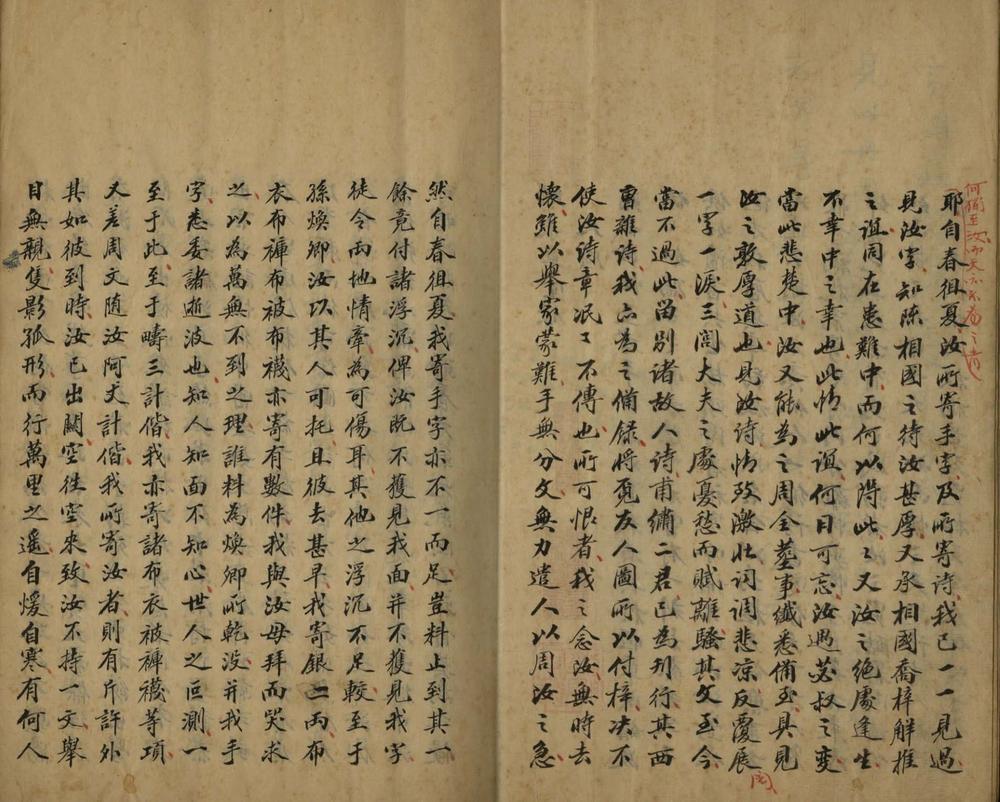 何獨至汝而天亦不為之清
耶自春徂夏汝所寄手字及所寄詩我已一一見過
見汝字知陳相國之待汝甚厚又承相國喬梓解推
之誼同在患難中而何以得此此又汝之絕處逢生
不幸中之幸也此情此誼何日可忘汝遇苾叔之變
當此悲楚中汝又能為之周全塟事纖悉俻至具見
汝之敦厚道也見汝詩情致激壯詞調悲凉反覆展
閱
一字一淚三閭大夫之處憂愁而賦離騷其文至今
當不過此留別諸故人詩甫繡二君已為刋行其西
曹雜詩我亦為之俻錄將覔友人圖所以付梓决不
使汝詩章泯泯不傳也所可恨者我之念汝無時去
懷雖以舉家蒙難手無分文無力遣人以周汝之急
然自春徂夏我寄手字亦不一而足豈料止到其一
餘竟付諸浮沉俾汝既不獲見我面并不獲見我字
徒令兩地情牽為可傷耳其他之浮沉不足較至于
孫煥卿汝以其人可托且彼去甚早我寄銀二兩布
衣布褲布被布襪亦寄有數件我與汝母拜而哭求
之以為萬無不到之理誰料為煥卿所乾沒并我手
字悉委諸逝波也知人知面不知心世人之叵測一
至于此至于疇三計偕我亦寄諸布衣被褲襪等項
又差周文随汝阿丈計偕我所寄汝者則有斤許外
其如彼到時汝已出關空往空來致汝不持一文舉
目無親隻影孤形而行萬里之遥自煖自寒有何人